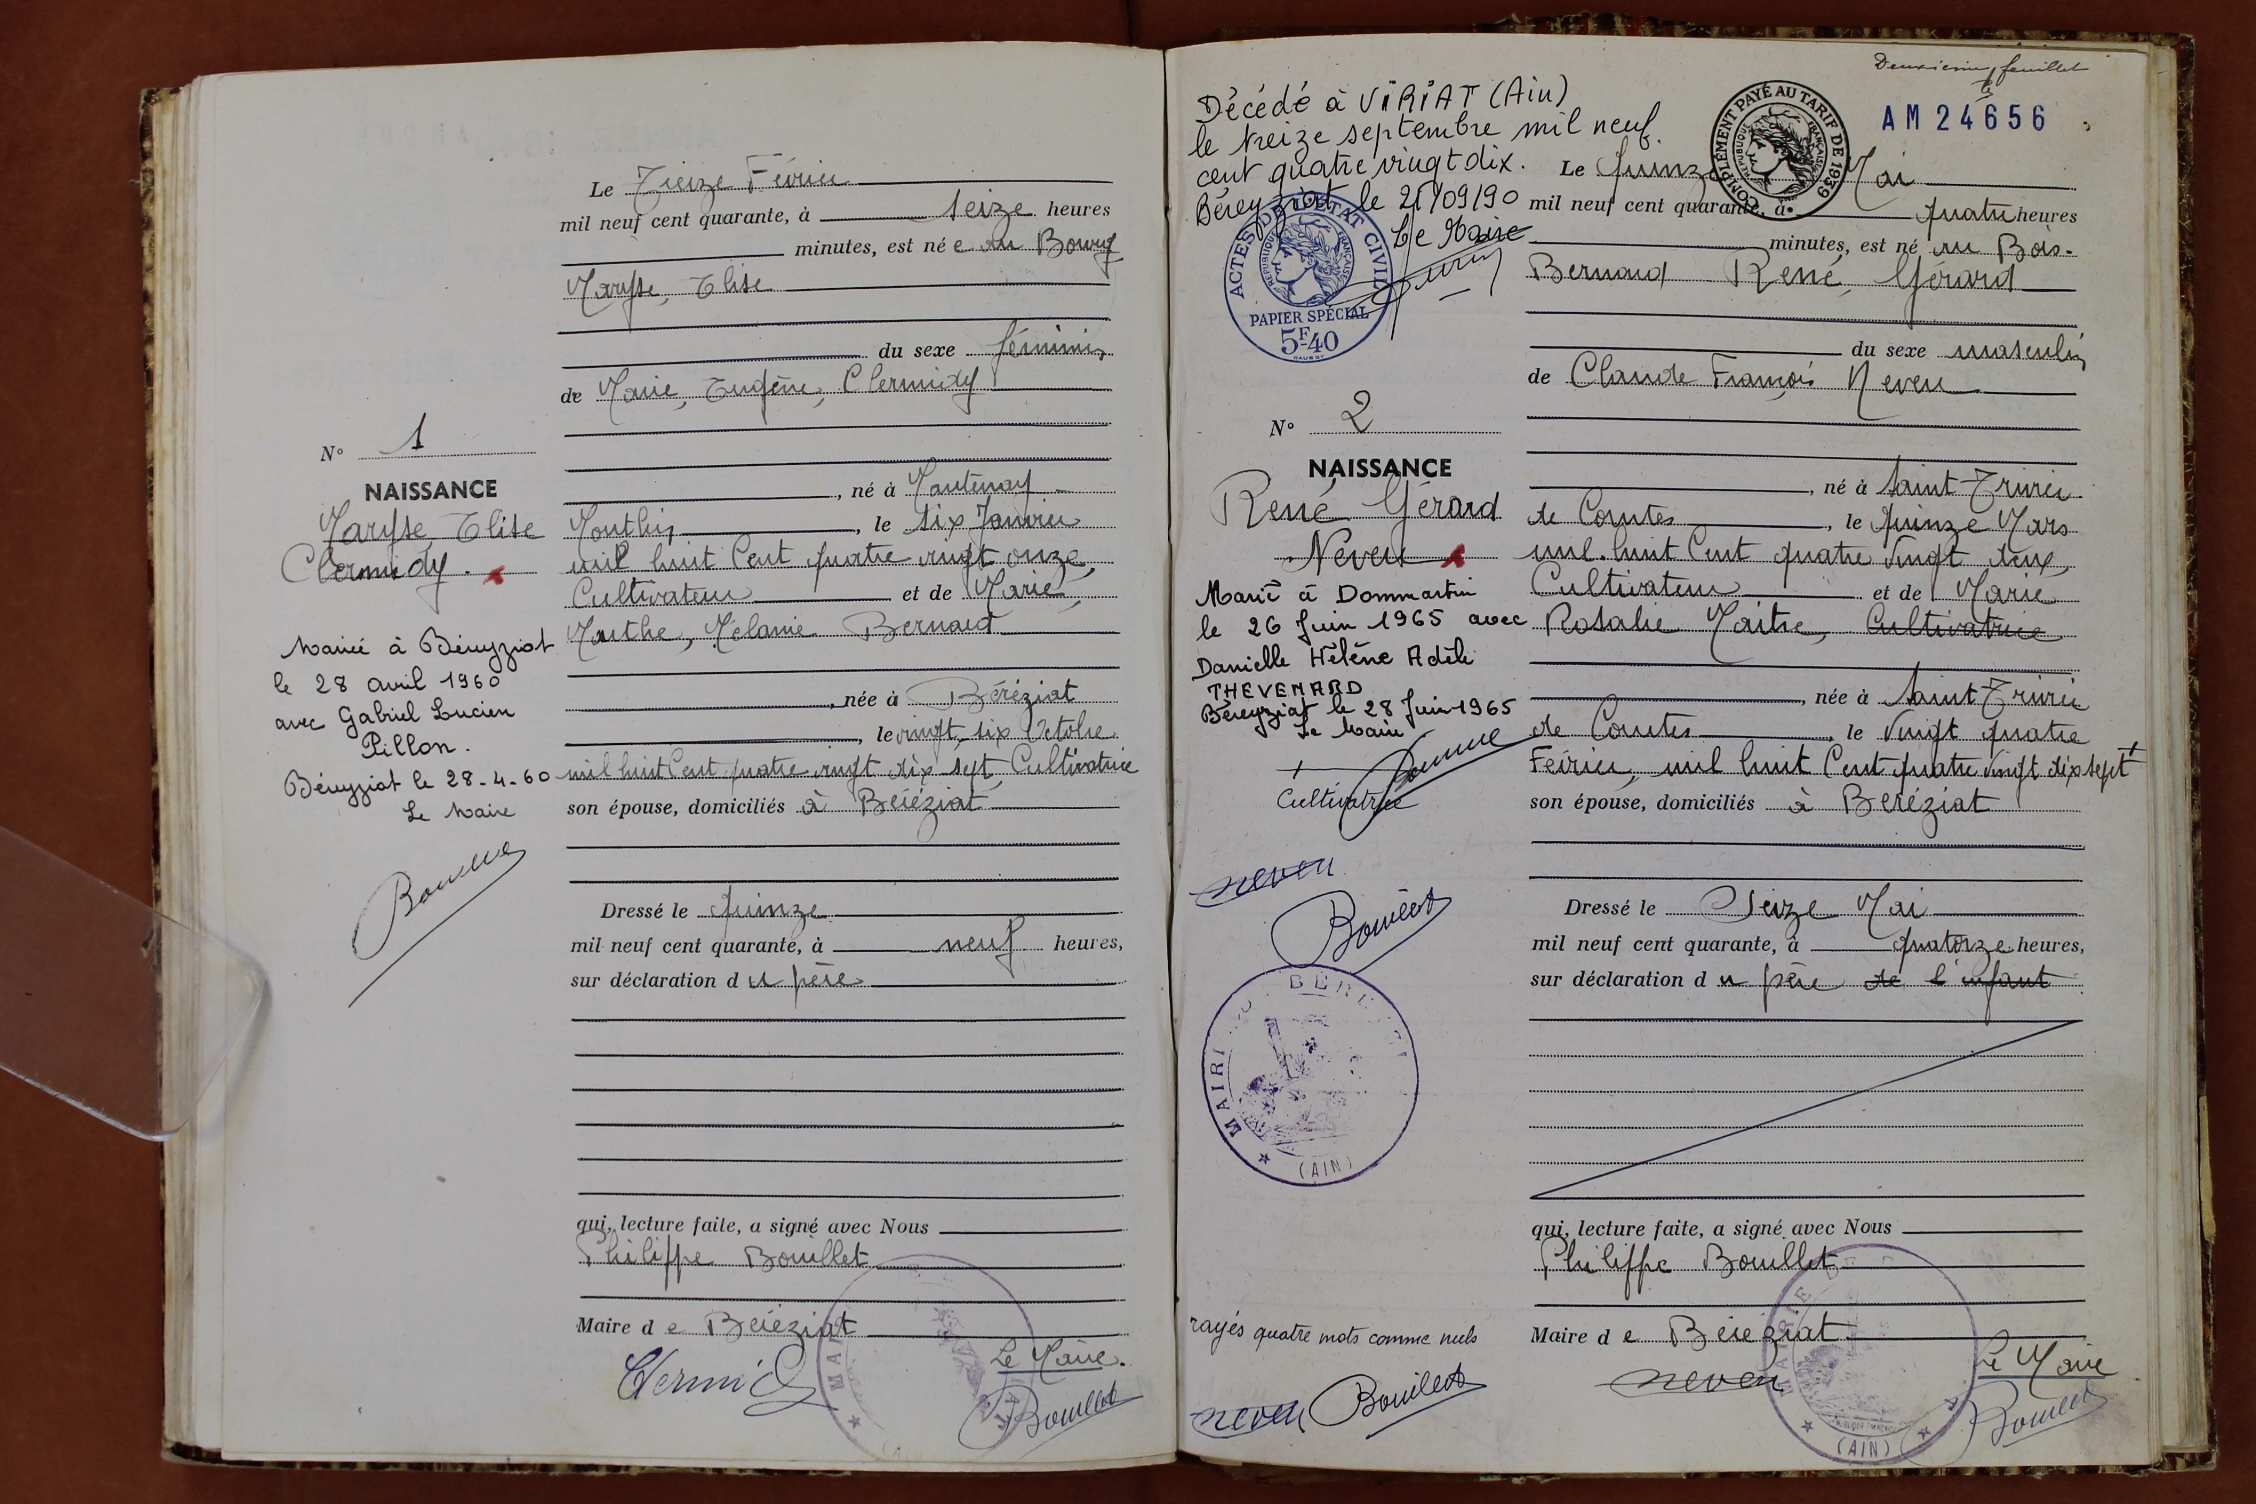 Le Treize Février
mil neuf cent quarante, à seize heures
minutes, est né e au Bourg
Maryse, Elise
du sexe féminin
de Marie, Eugène, Clermidy
N° 1
NAISSANCE
Maryse, Elise
Clermidy.
, né à Mantenay
Montlin, le six Janvier
mil huit Cent quatre vingt onze,
Cultivateur et de Marie,
Marthe, Mélanie Bernard
, née à Béréziat
, le vingt-six Octobre
mil huit Cent quatre vingt dix sept, Cultivatrice
son épouse, domiciliés à Béréziat
Mariée à Béreyziat
le 28 avril 1960
avec Gabriel Lucien
Pillon.
Béreyziat le 28-4-60
Le Maire
Dressé le quinze
mil neuf cent quarante, à neuf heures,
sur déclaration d u père
qui, lecture faite, a signé avec Nous
Philippe Bouillet
Maire d e Béréziat
Le Maire.
Clermidy
Bouillet
Deuxième feuillet
AM 24656
COMPLÉMENT PAYÉ AU TARIF DE 1939
RÉPUBLIQUE FRANÇAISE
Décédé à VIRIAT (Ain)
le treize septembre mil neuf
cent quatre vingt dix.
Béreyziat le 21/09/90
Le Maire
ACTES DE L'ÉTAT CIVIL
RÉPUBLIQUE FRANÇAISE
PAPIER SPÉCIAL
5F40
Le quinze Mai
mil neuf cent quarante, à quatre heures
minutes, est né au Bois.
Bernard René, Gérard
du sexe masculin
de Claude François Neveu
N° 2
NAISSANCE
René Gérard
Neveu
, né à Saint-Trivier
de Courtes, le quinze Mars
mil huit Cent quatre vingt deux,
Cultivateur et de Marie
Rosalie Maitre, Cultivatrice
, née à Saint Trivier
de Courtes, le Vingt quatre
Février, mil huit Cent quatre vingt dix sept
son épouse, domiciliés à Béréziat
Marié à Dommartin
le 26 Juin 1965 avec
Danielle Hélène Adèle
THEVENARD
Béreyziat le 28 Juin 1965
Le Maire
Cultivatrice
neveu
Bouillet
MAIRIE DE BÉRÉZIAT
(AIN)
Dressé le Seize Mai
mil neuf cent quarante, à quatorze heures,
sur déclaration d u père de l'enfant
qui, lecture faite, a signé avec Nous
Philippe Bouillet
Maire d e Béréziat
rayés quatre mots comme nuls
neveu Bouillet
neveu
Le Maire
Bouillet
MAIRIE DE
(AIN)